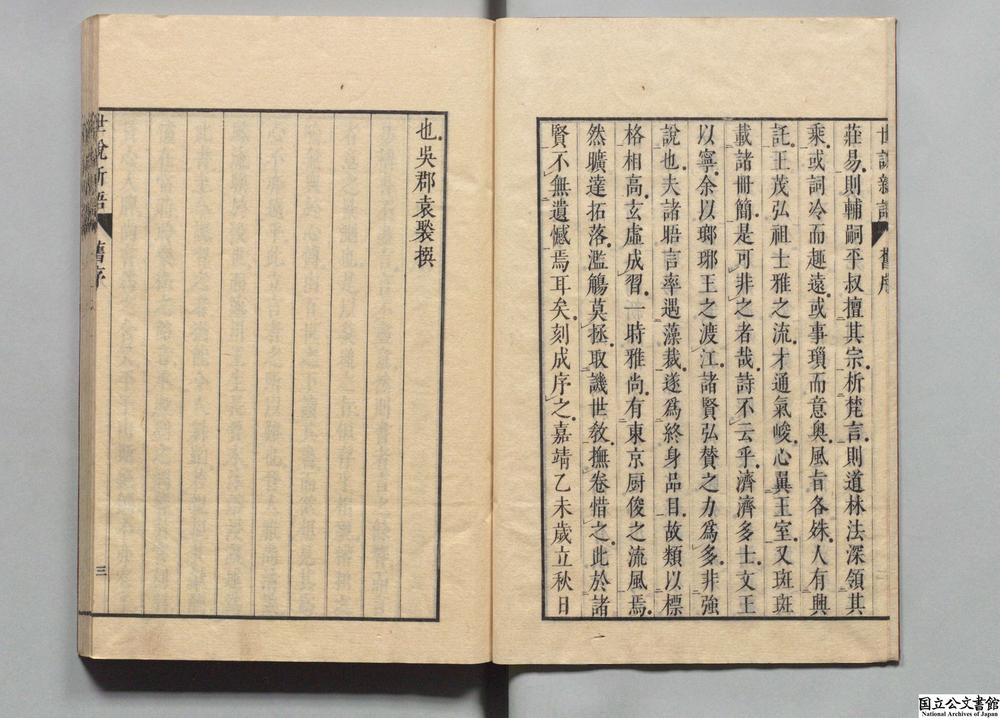 世說新語 舊序
莊易則輔嗣平叔擅其宗析梵言則道林法深領其
乘或詞冷而趣遠或事瑣而意奧風旨各殊人有興
託王茂弘祖士雅之流才通氣峻心翼王室又斑斑
載諸冊簡是可非之者哉詩不云乎濟濟多士文王
以寧余以瑯琊王之渡江諸賢弘賛之力為多非強
說也夫諸晤言率遇藻裁遂為終身品目故類以標
格相高玄虛成習一時雅尚有東京厨俊之流風焉
然曠達拓落濫觴莫拯取譏世敎撫卷惜之此於諸
賢不無遺憾焉耳矣刻成序之嘉靖乙未歲立秋日
也吳郡袁褧撰
世說新語 舊序
三
国立公文書館
National Archives of Japan